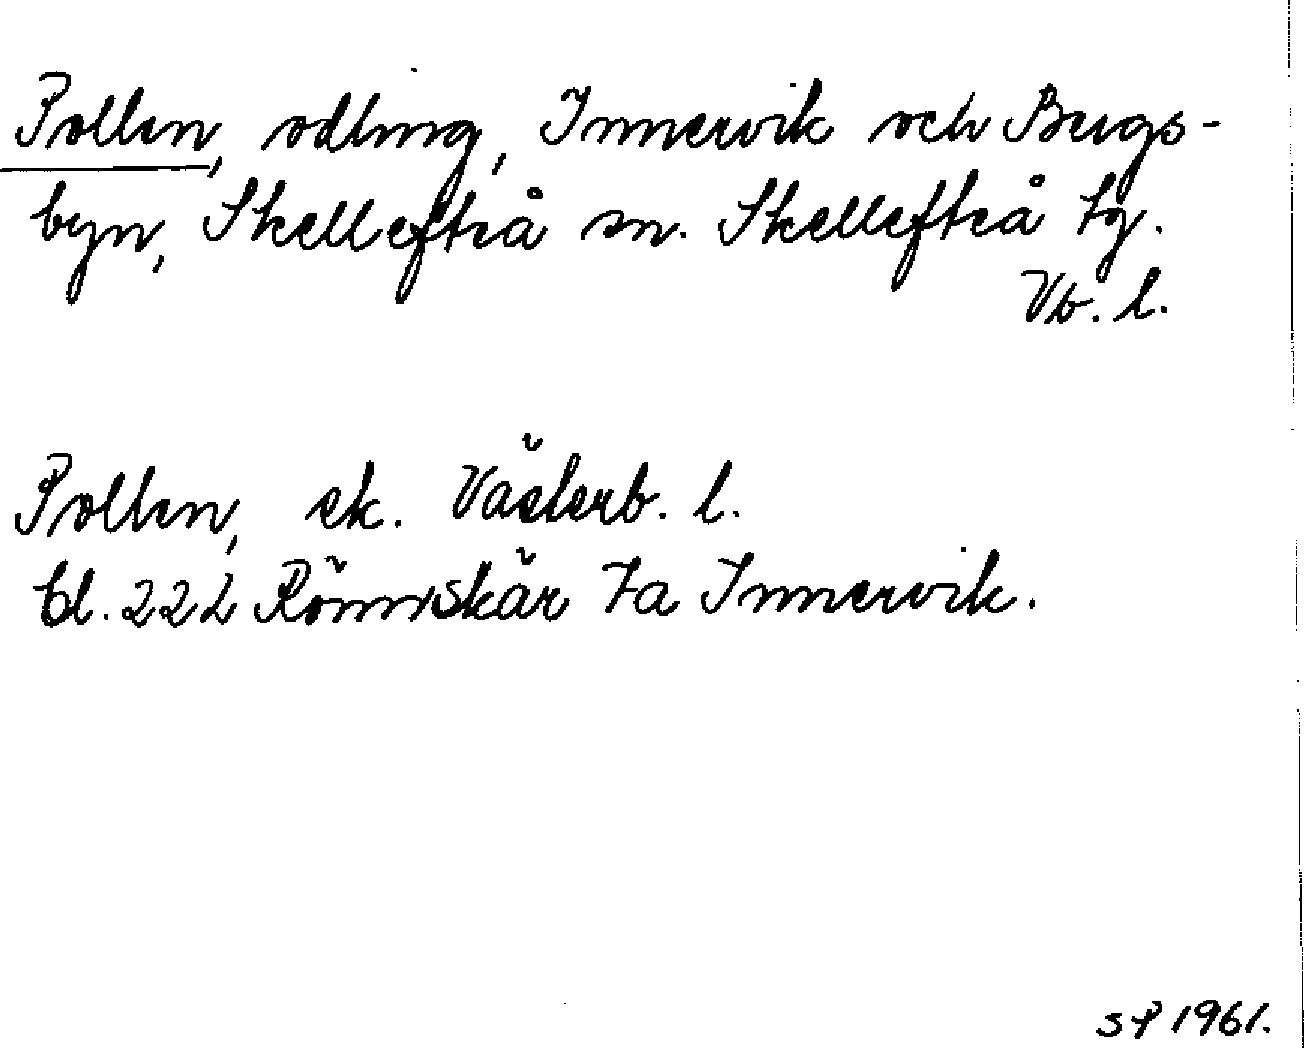 Pollen, odling, Innervik och Burgs-
byn, Skellefteå sn. Skellefteå tg.
Vb. l.
Pollen, ek. Västerb. l.
bl. 222 Rönnskär 7a Innervik.
SP 1961.